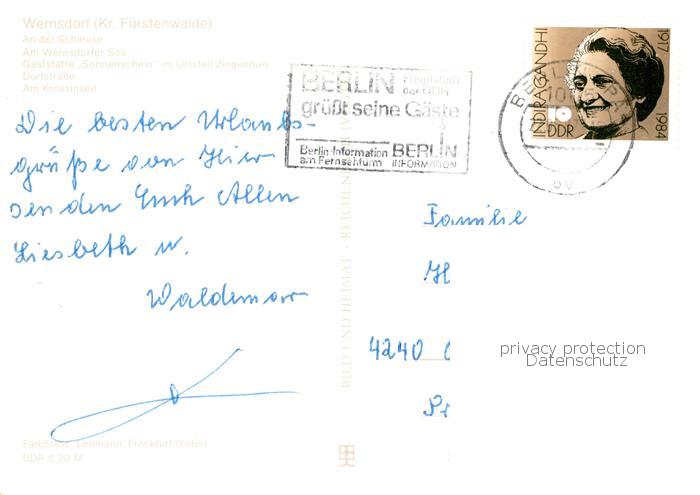 Wernsdorf (Kr. Fürstenwalde)
An der Schleuse
Am Wernsdorfer See
Gaststätte „Sonnenschein" im Ortsteil Ziegenhals
Dorfstraße
Am Krossinsee
Die besten Urlaubs-
grüße von Hier
senden Euch Allen
Liesbeth u.
Waldemar
Farbfotos: Lehmann, Frankfurt (Oder)
DDR 0,20 M
BILD UND HEIMAT · REICHEN
BERLIN Hauptstadt der DDR
grüßt seine Gäste
Berlin-Information
am Fernsehturm
BERLIN
INFORMATION
INDIRA GANDHI
1917
1984
10
DDR
BERLIN
Familie
4240
privacy protection
Datenschutz